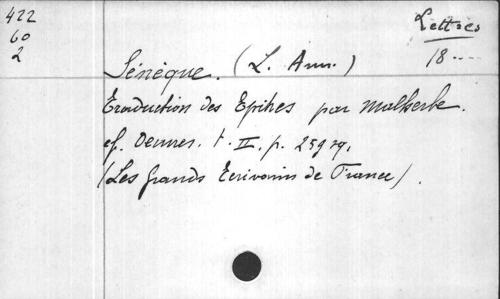 422
60
2
Lettres
18....
Sénèque. (L. Ann.)
Traduction des Epitres par Malherbe.
cf. Oeuvres. t. II. p. 259 sq.
(Les grands Ecrivains de France).